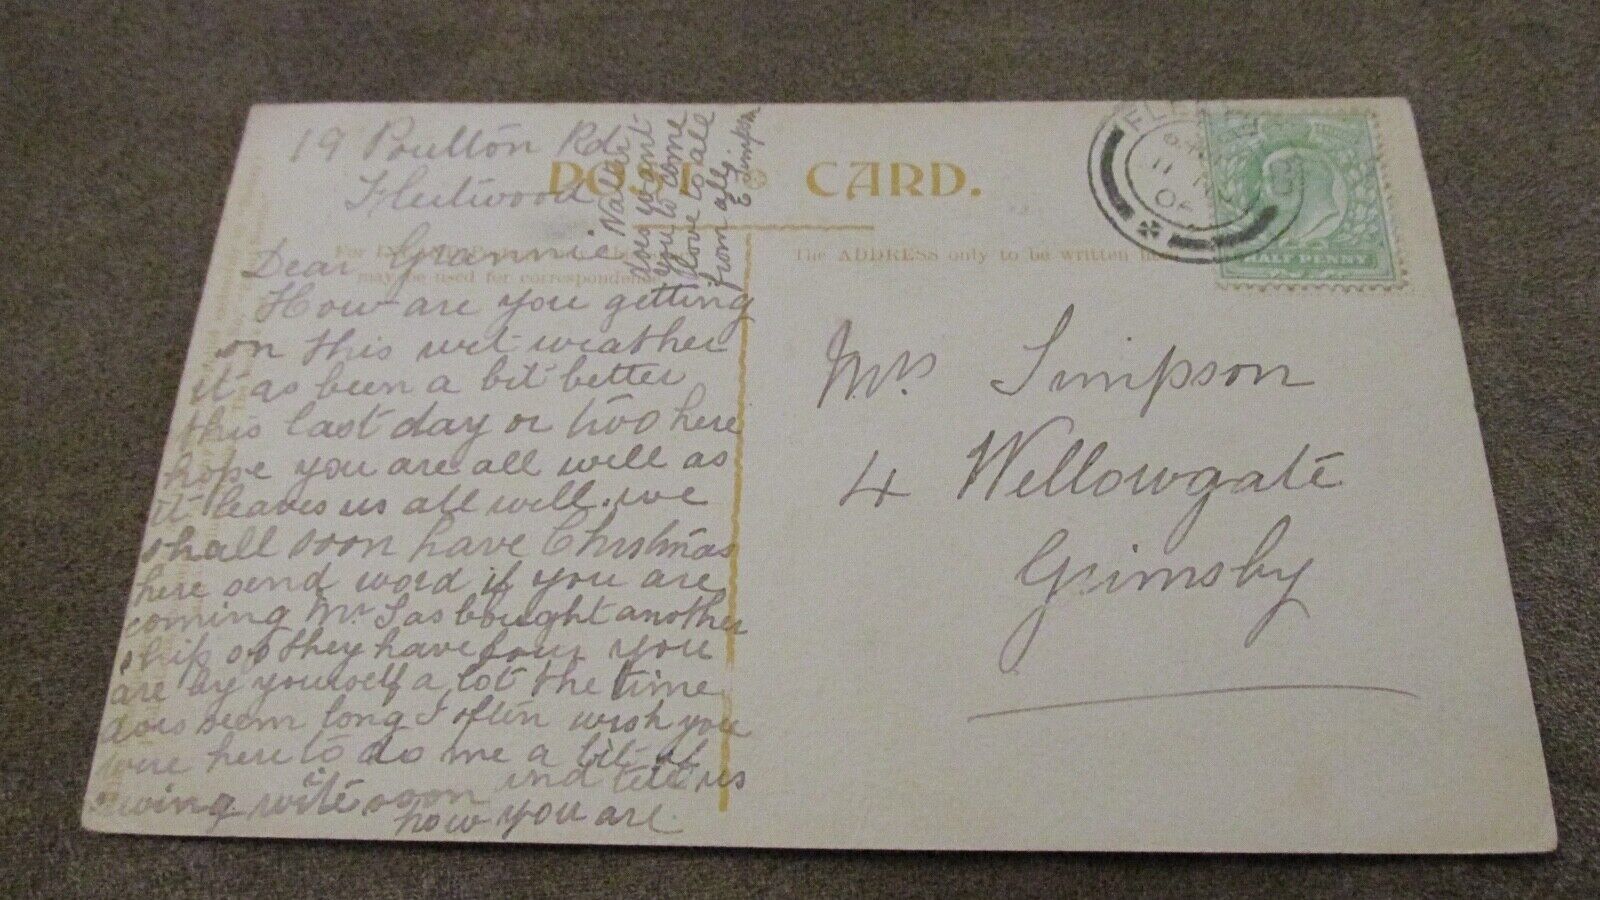 19 Poulton Rd
Fleetwood
POST CARD.
The ADDRESS only to be written
may be used for correspondence
HALF PENNY
Dear Grannie
How are you getting
on this wet weather
it as been a bit better
this last day or two here
hope you are all well as
it leaves us all well. we
shall soon have Christmas
here send word if you are
coming Mr I as bought another
ship so they have four you
are by yourself a lot the time
does seem long I often wish you
were here to do me a bit of
sewing write soon and tell us
how you are
Walter
does want
you to come
love to all
from all
E Simpson
Mrs Simpson
4 Wellowgate
Grimsby